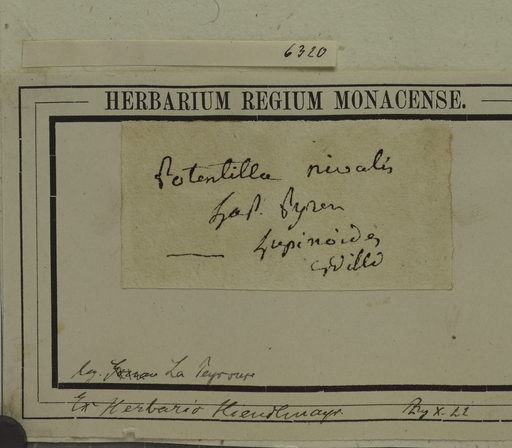 6320
HERBARIUM REGIUM MONACENSE.
Potentilla nivalis
LaP. Pyren
— Lupinoides
Willd
leg. La Peyrouse
Ex Herbario Hiendlmayr.